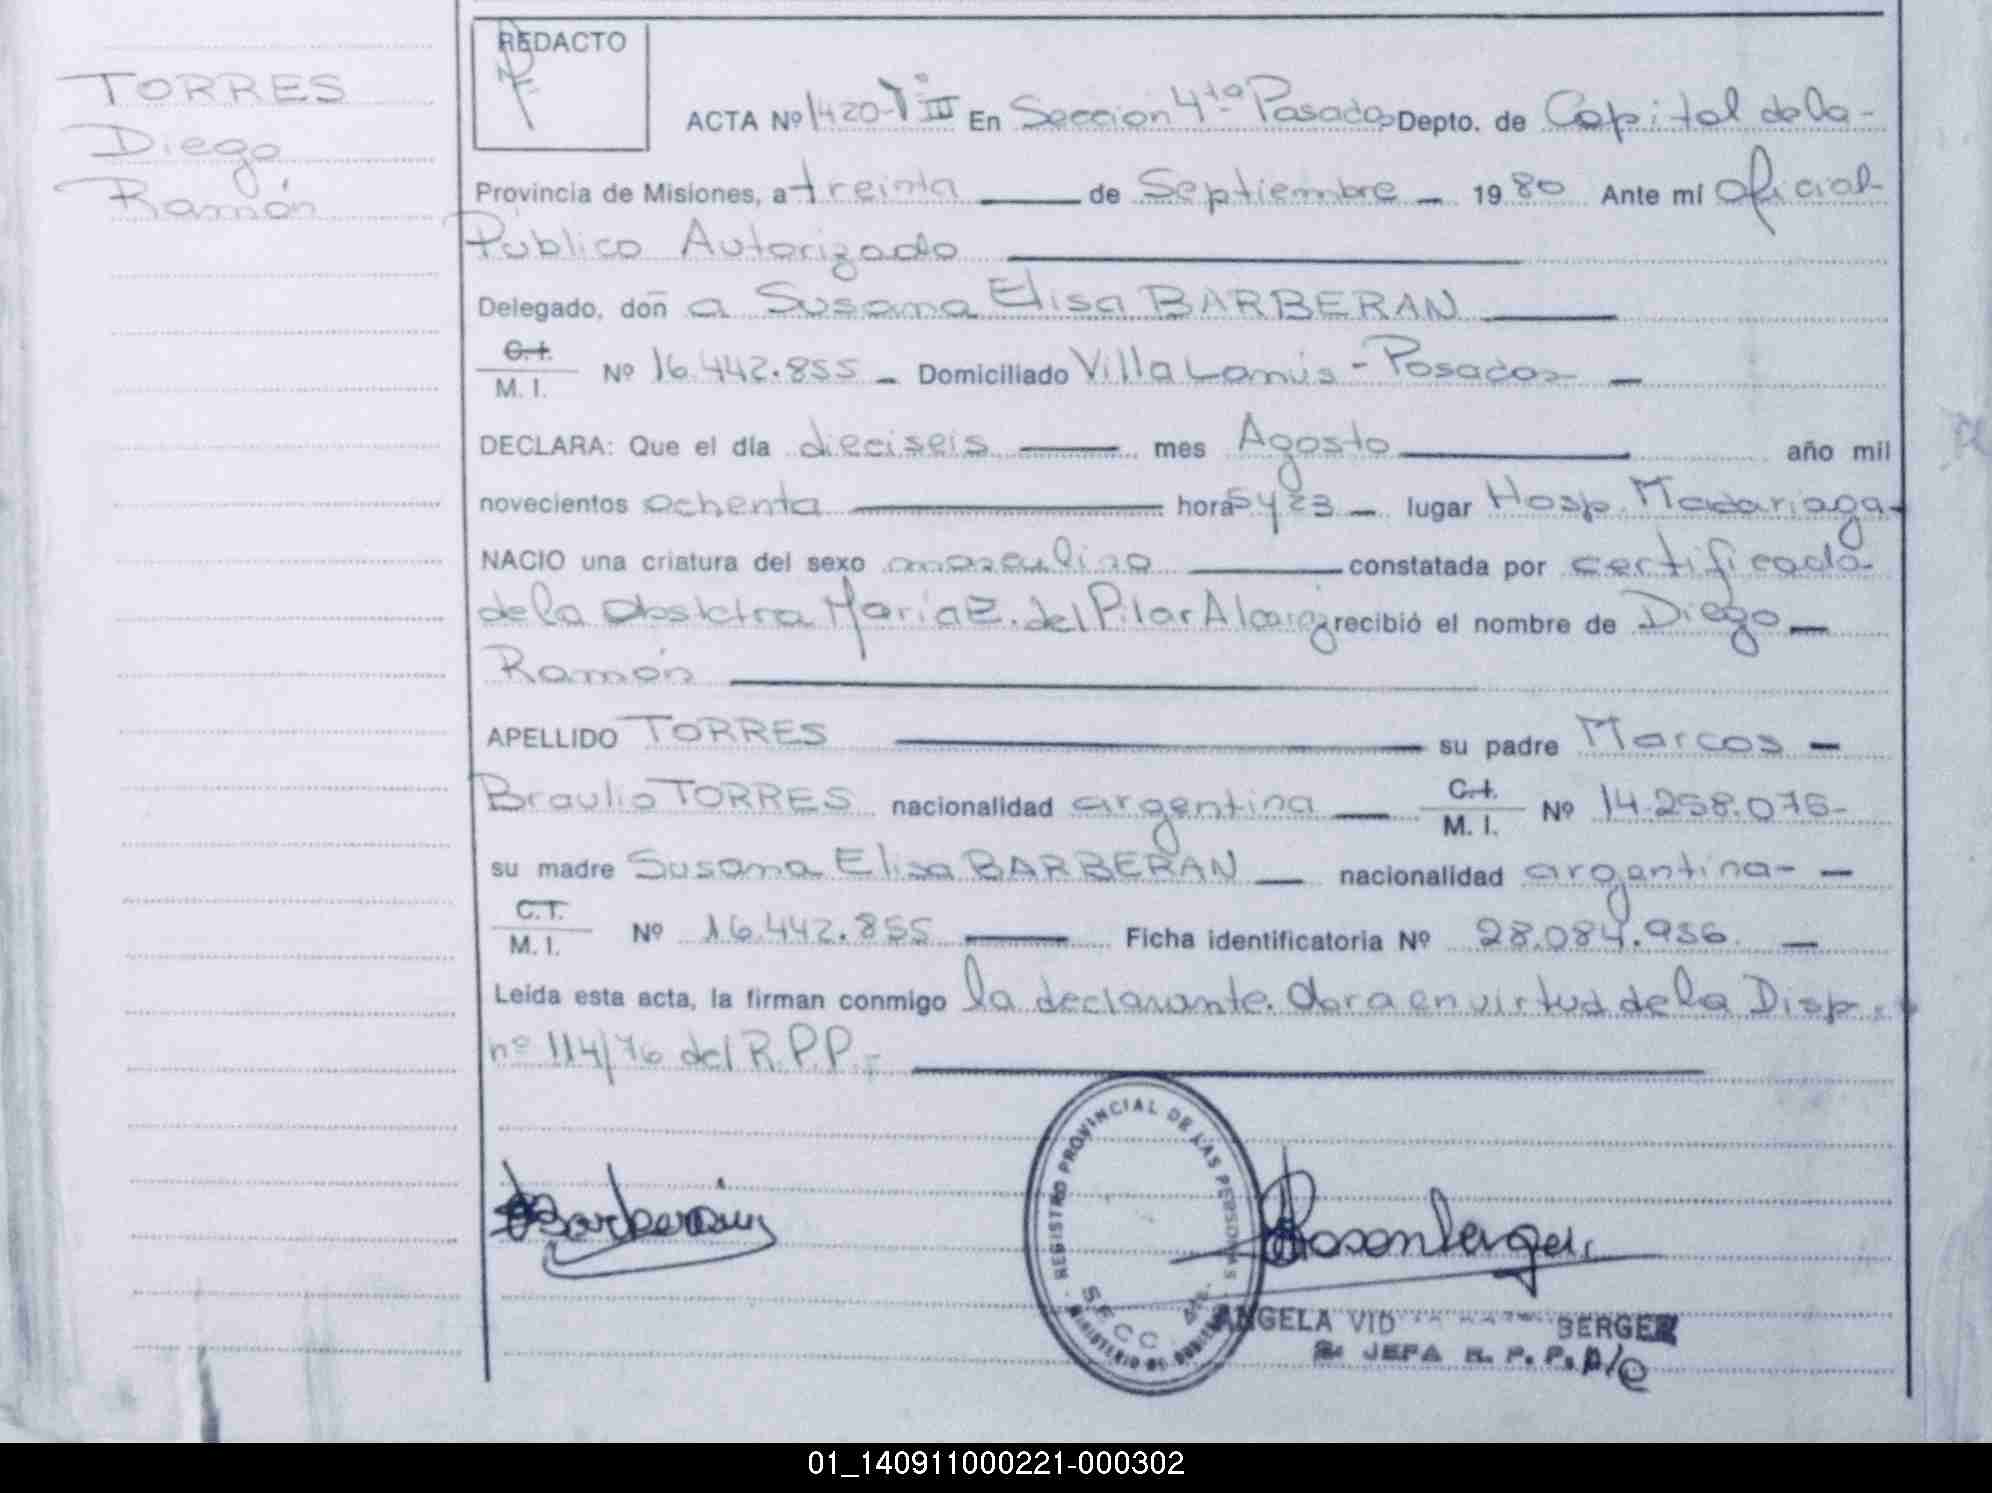 TORRES
Diego
Ramón
REDACTO
ACTA Nº 1420-T III En Seccion 4ta Posadas Depto. de Capital de la-
Provincia de Misiones, a treinta de Septiembre - 1980 Ante mí Oficial-
Público Autorizado
Delegado, doñ a Susana Elisa BARBERAN
C.I.
M. I. Nº 16.442.855 - Domiciliado Villa Lanús - Posadas -
DECLARA: Que el día dieciseis mes Agosto año mil
novecientos ochenta hora 5 y 23 - lugar Hosp. Madariaga-
NACIO una criatura del sexo masculino constatada por certificado
de la Obstetra María E. del Pilar Alcaraz recibió el nombre de Diego -
Ramón
APELLIDO TORRES su padre Marcos -
Braulio TORRES nacionalidad argentina C.I.
M. I. Nº 14.258.076-
su madre Susana Elisa BARBERAN - nacionalidad argentina- -
C.I.
M. I. Nº 16.442.855 Ficha identificatoria Nº 28.084.956 -
Leída esta acta, la firman conmigo la declarante. Obra en virtud de la Disp.
nº 114/76 del R.P.P.
REGISTRO PROVINCIAL DE LAS PERSONAS
SECC. 4ta.
MINISTERIO DE GOBIERNO
Barberan
Rosenberger
ANGELA VID BERGER
JEFA R. P. P. A/C
01_140911000221-000302